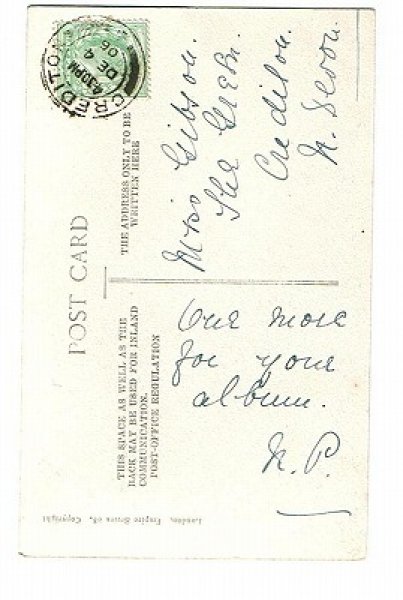 POST CARD
THIS SPACE AS WELL AS THE
BACK MAY BE USED FOR INLAND
COMMUNICATION.
POST-OFFICE REGULATION
THE ADDRESS ONLY TO BE
WRITTEN HERE
CREDITON
4.30PM
DE 4
06
One more
for your
album.
N.P.
Miss Gibson.
The Green.
Crediton.
N. Devon.
London, Empire Series 08. Copyright